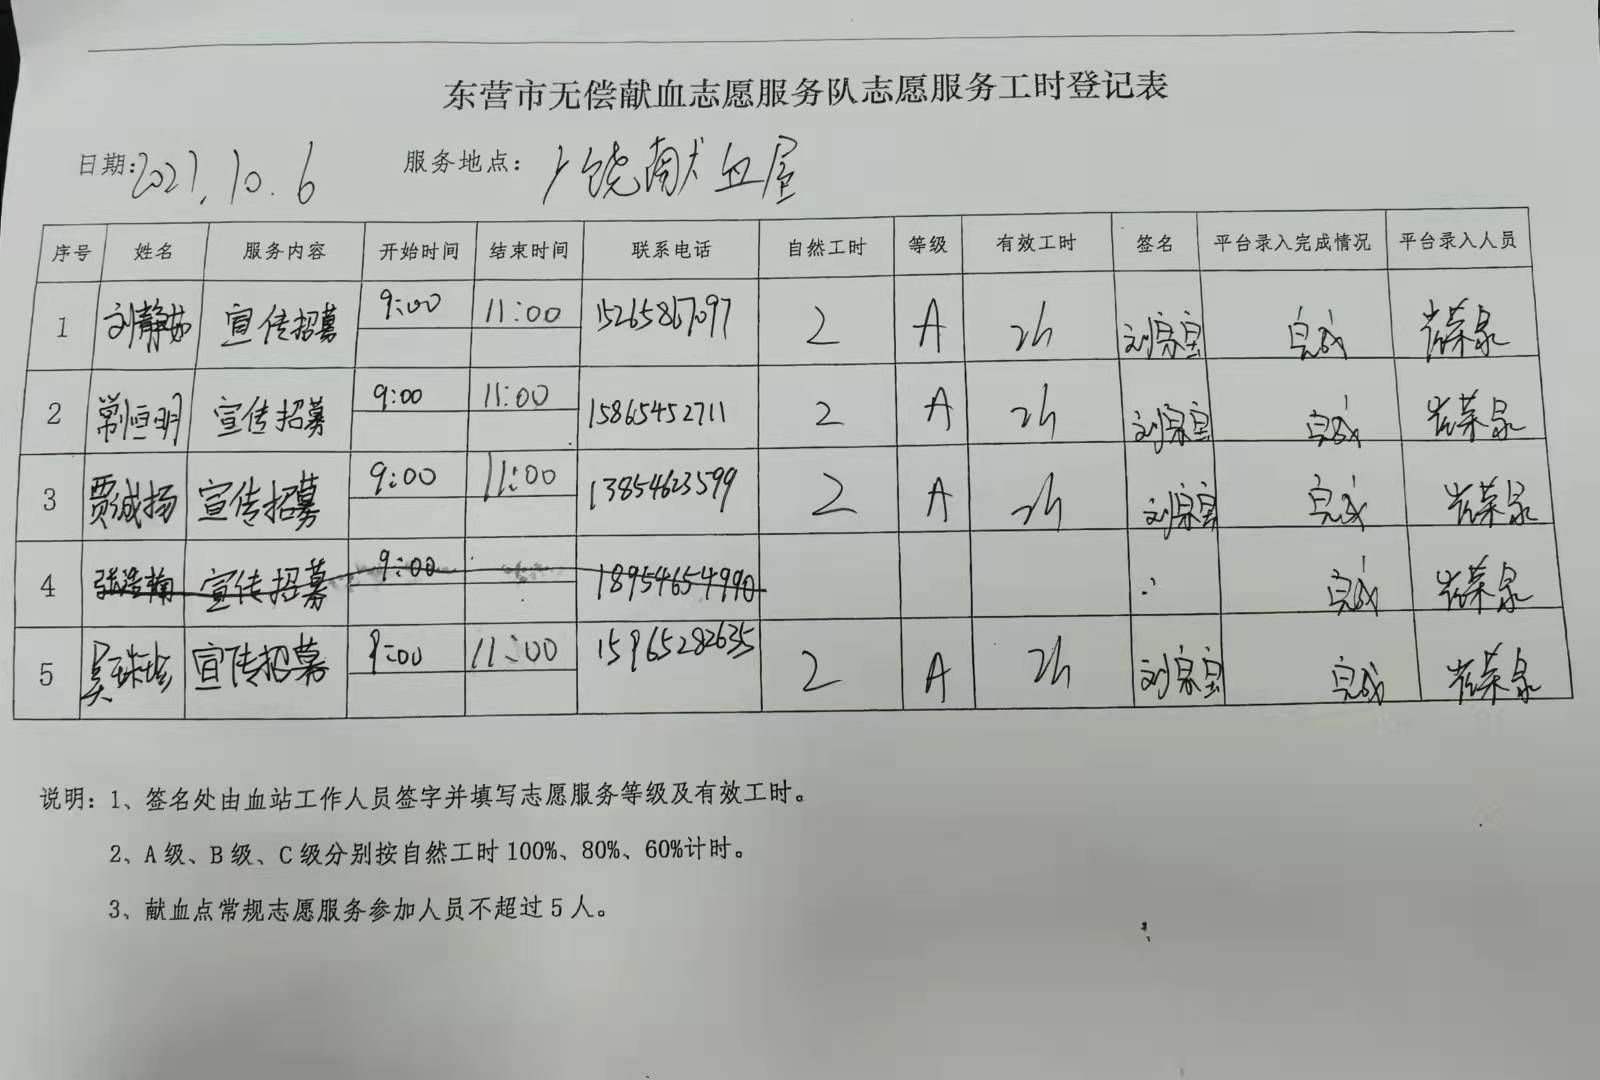 东营市无偿献血志愿服务队志愿服务工时登记表
日期:2021.10.6 服务地点:广饶献血屋
序号 姓名 服务内容 开始时间 结束时间 联系电话 自然工时 等级 有效工时 签名 平台录入完成情况 平台录入人员
1 刘静 宣传招募 9:00 11:00 15265867097 2 A 2h 刘宗宝 完成 荣泉
2 常恒明 宣传招募 9:00 11:00 15865452711 2 A 2h 刘宗宝 完成 荣泉
3 贾诚扬 宣传招募 9:00 11:00 13854623599 2 A 2h 刘宗宝 完成 荣泉
4 张浩翰 宣传招募 9:00 18954654990 完成 荣泉
5 吴珍 宣传招募 9:00 11:00 15965282635 2 A 2h 刘宗宝 完成 荣泉
说明:1、签名处由血站工作人员签字并填写志愿服务等级及有效工时。
2、A级、B级、C级分别按自然工时100%、80%、60%计时。
3、献血点常规志愿服务参加人员不超过5人。